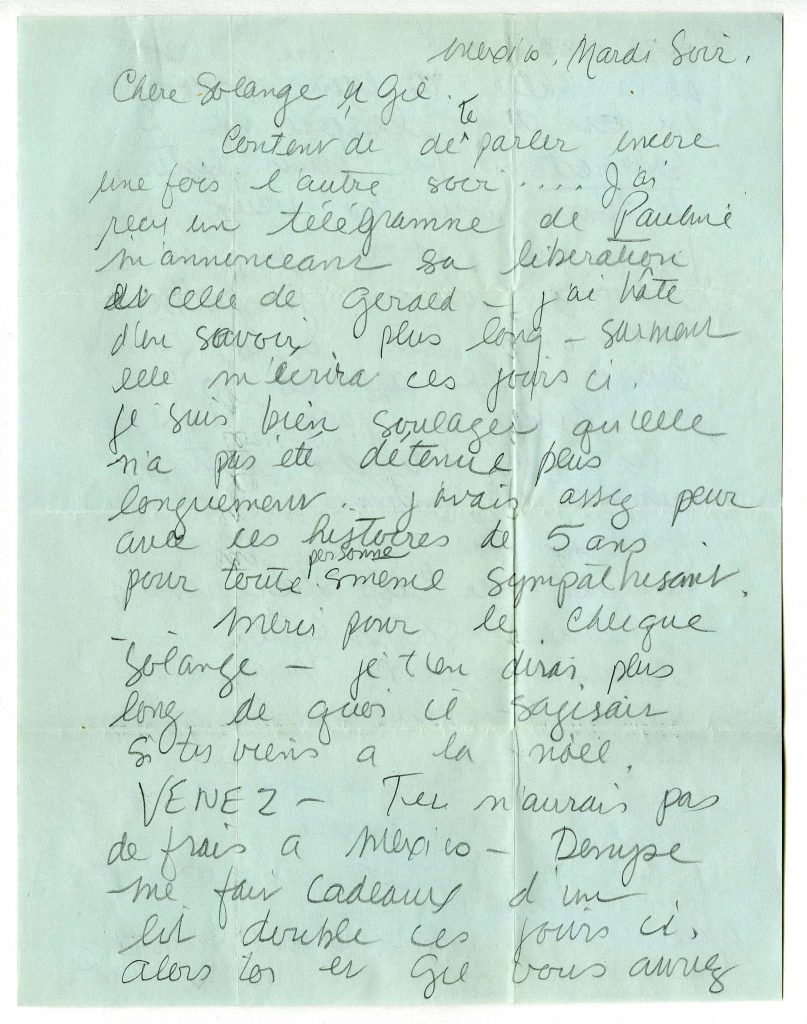 Mexico. Mardi Soir.
Chère Solange et Gil.
Content de de te parler encore
une fois l'autre soir.... J'ai
reçu un télégramme de Pauline
m'annonceant sa libération
et celle de Gerald – j'ai hâte
d'en savoir plus long – surment
elle m'écrira ces jours ci.
je suis bien soulager qu'elle
n'a pas été détenue plus
longuement.. j'avais assez peur
avec ces histoires de 5 ans
pour toute personne même sympathisant.
Merci pour le cheque
Solange – je t'en dirai plus
long de quoi il sagisait
si tu viens a la noël.
VENEZ – Tu n'aurais pas
de frais a Mexico – Denyse
me fait cadeaux d'un
lit double ces jours ci.
alors toi et Gil vous aurez